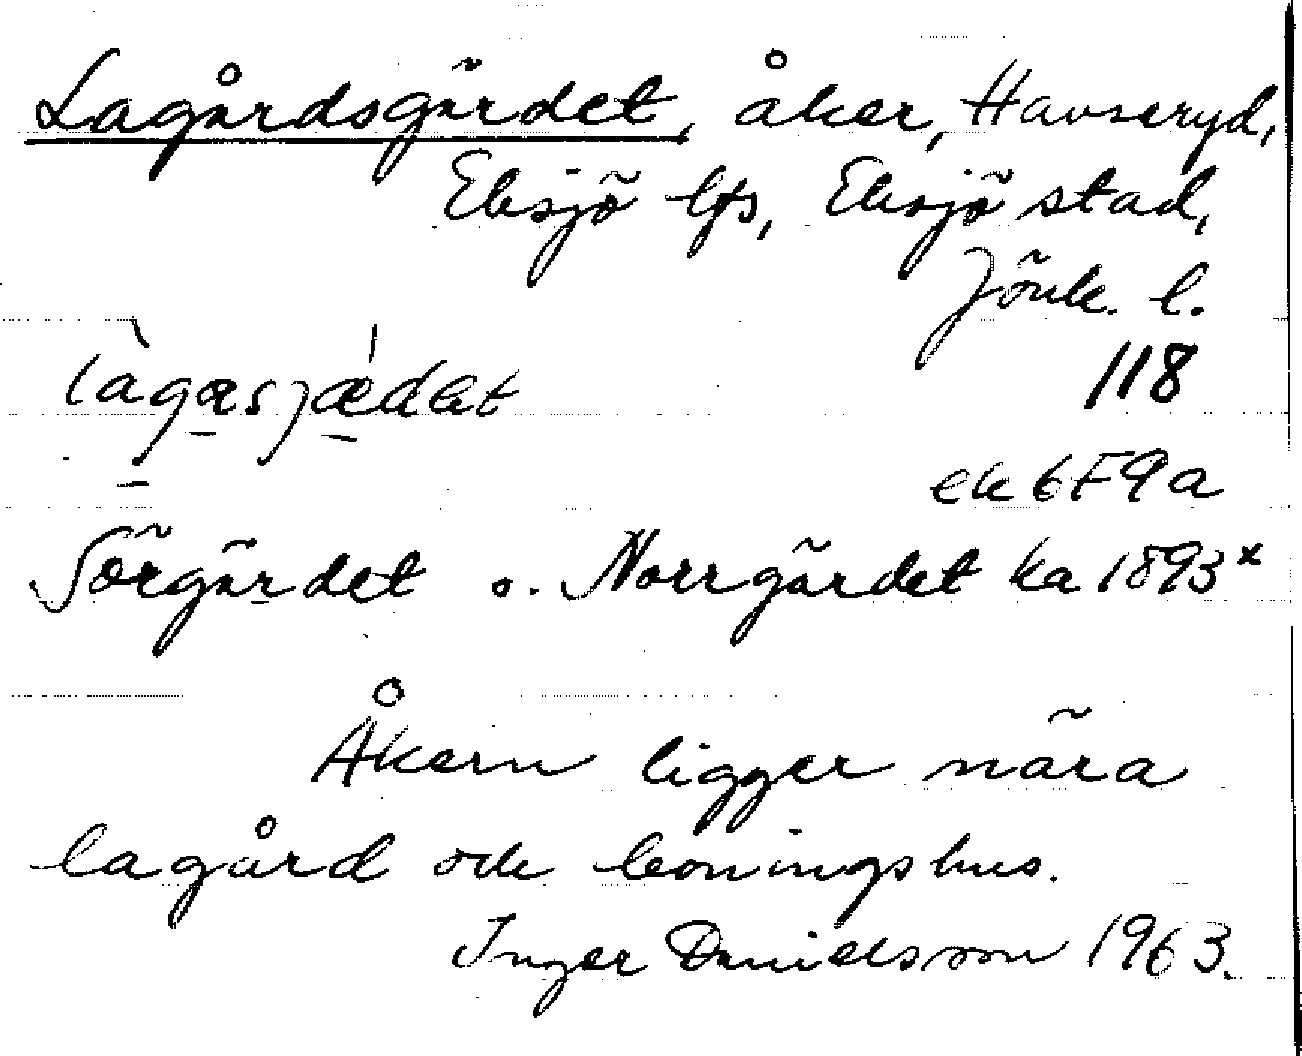 Lagårdsgärdet, åker, Havseryd,
Eksjö lfs, Eksjö stad,
Jönk. l.
làgæsjǽdet 118
ek 6F9a
Sörgärdet o. Norrgärdet ka 1893ˣ
Åkern ligger nära
lagård och boningshus.
Inger Danielsson 1963.